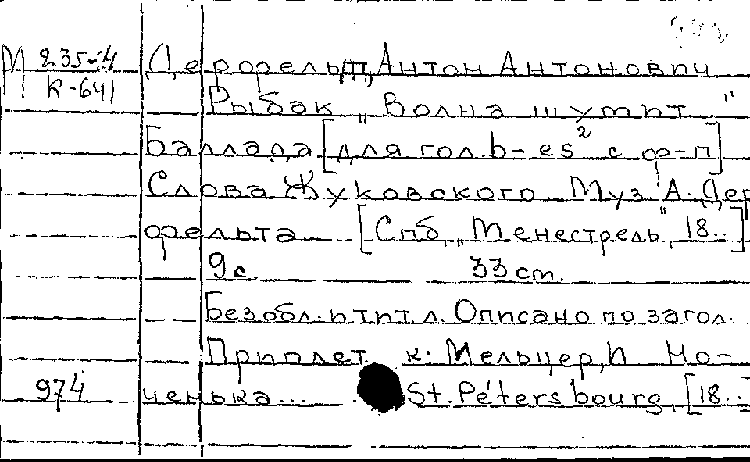 М 235-4 Дерфельт, Антон Антонович
К-641 Рыбак „Волна шумит..."
Баллада [для гол. b-es² с ф-п]
Слова Жуковского Муз. А. Дер
фельта [Спб, „Менестрель", 18..]
9 с. 33 cm.
Без обл. и тит л. Описано по загол.
Приплет к: Мельцер, И Но-
974 ченька... St. Pétersbourg, [18..